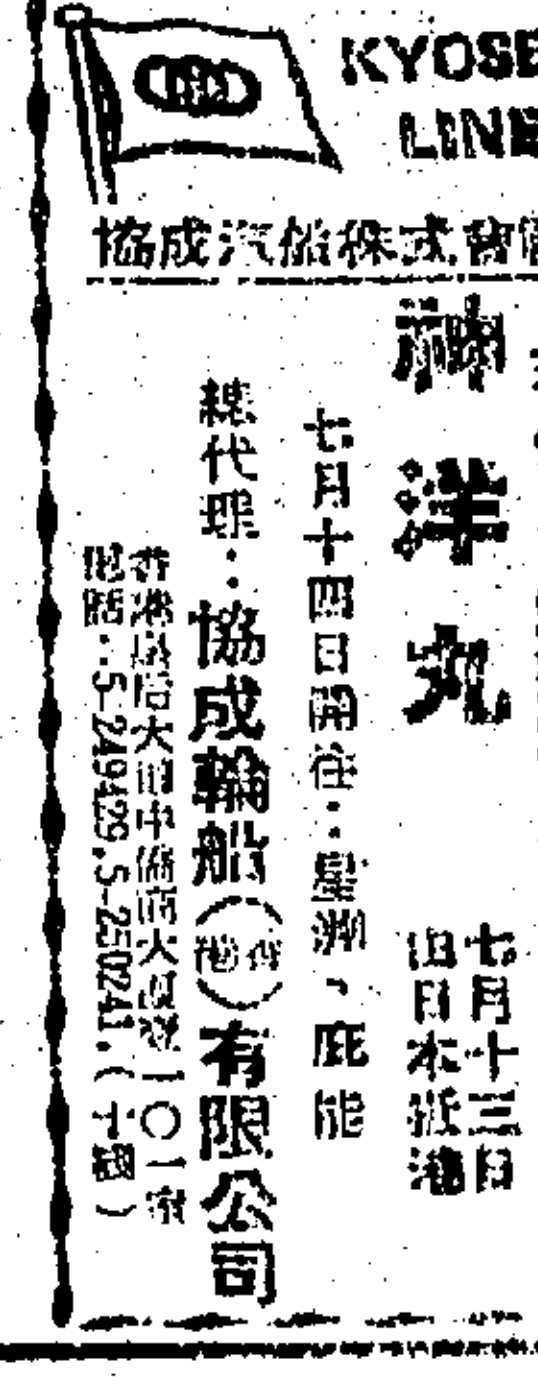 KYOSE
LINE
協成汽船株式會
神洋丸
七月十三日
由日本抵港
七月十四日開往：星洲、庇能
總代理：協成輪船（香港）有限公司
香港皇后大道中 大廈 一〇一室
電話：5-249429,5-250241.（十線）